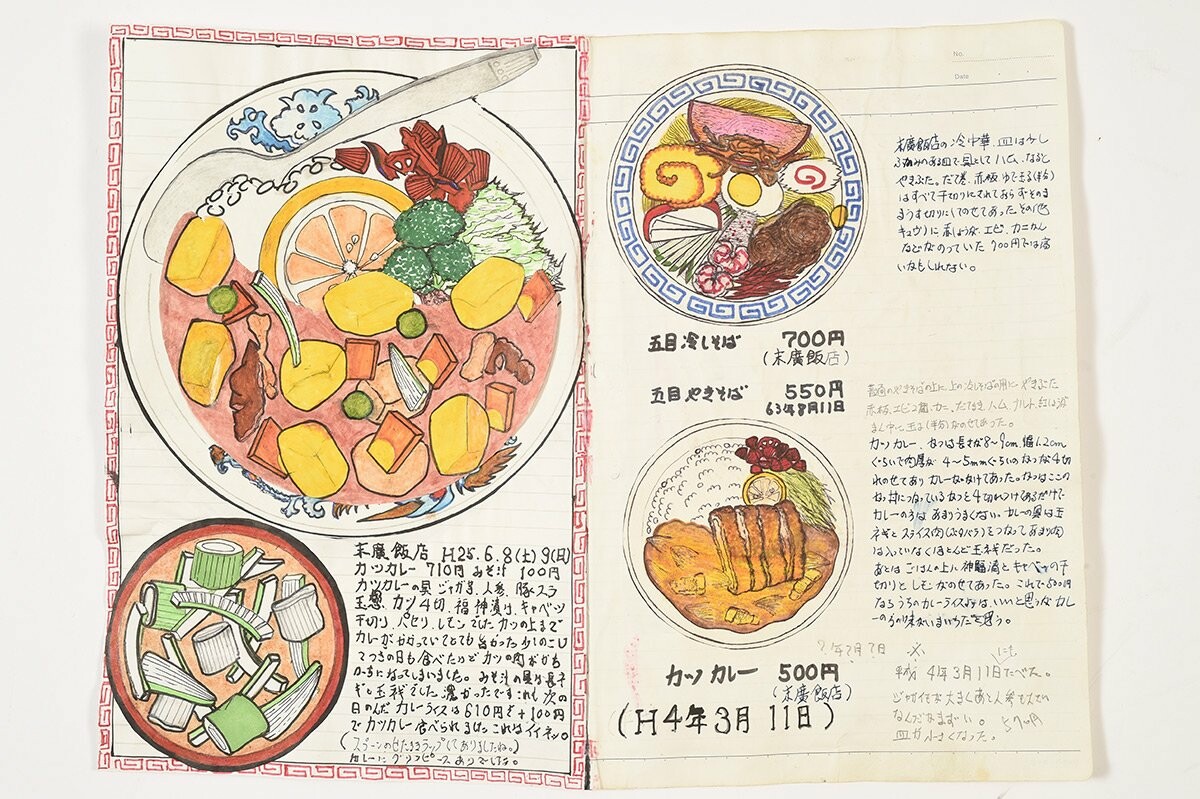 末廣飯店 H25.6.8(土)9(日)
カツカレー 710円 みそ汁 100円
カツカレーの具 ジャガ芋、人参、豚スラ
玉葱、カツ4切、福神漬け、キャベツ
千切り、パセリ、レモンでした カツの上まで
カレーがかかっていてとても
てつぎの日も食べたけど カツの肉がかた
になってしまいました。みそ汁の具は長ネ
ギと玉ネギでした 濃かったです これも次の
日のんだ カレーライスは610円 +100円
でカツカレー食べられる これはイイネッ。
(スプーンのせたままラップしてありましたね。)
カレーに グリンピース ありでしたね。
No.
Date
末廣飯店の冷中華、皿は
ある皿で具として ハム、なると
やきぶた。だて巻、赤板 ゆで玉子(半分)
はすべて千切りにされておらずそのま
まうす切りにしてのせてあった その他
キュウリ エビ、カニカん
などがのっていた 700円では高
いかもしれない。
五目冷しそば 700円
(末廣飯店)
五目やきそば 550円
63年8月11日
普通のやきそばの上に上の冷しそばの用に やきぶた
赤板、エビ カニ、だてまき、ハム、ナルト、紅しょうが
まん中に玉子(半分)なのせてあった。
カツカレー、カツは長さが8〜9cm 幅1.2cm
ぐらいで肉厚が 4〜5mmぐらいの カツが4切
れのせてあり カレーがかけてあった。カツはここの
カツ丼になっているカツと4切れつけてあるだけで
カレーのほうは あまりうまくない。カレーの具は玉
ネギと スライス肉(ぶたバラ)をつかって あまり肉
は入っていなくほとんど玉ネギだった。
あとは ごはんの上に 神福漬と キャベツの千
切りと レモンがのせてあった。これで500円
ならうちのカレーライスよりは、いいと思うが カレ
ーのみの味はいまいちだと思う。
カツカレー 500円
(末廣飯店)
(H4年3月11日)
7年2月7日 にも
平成 4年3月11日たべた。
ジャガイモが大きくあと人参も入ってい
なんだかまずい。 570円
皿が小さくなった。